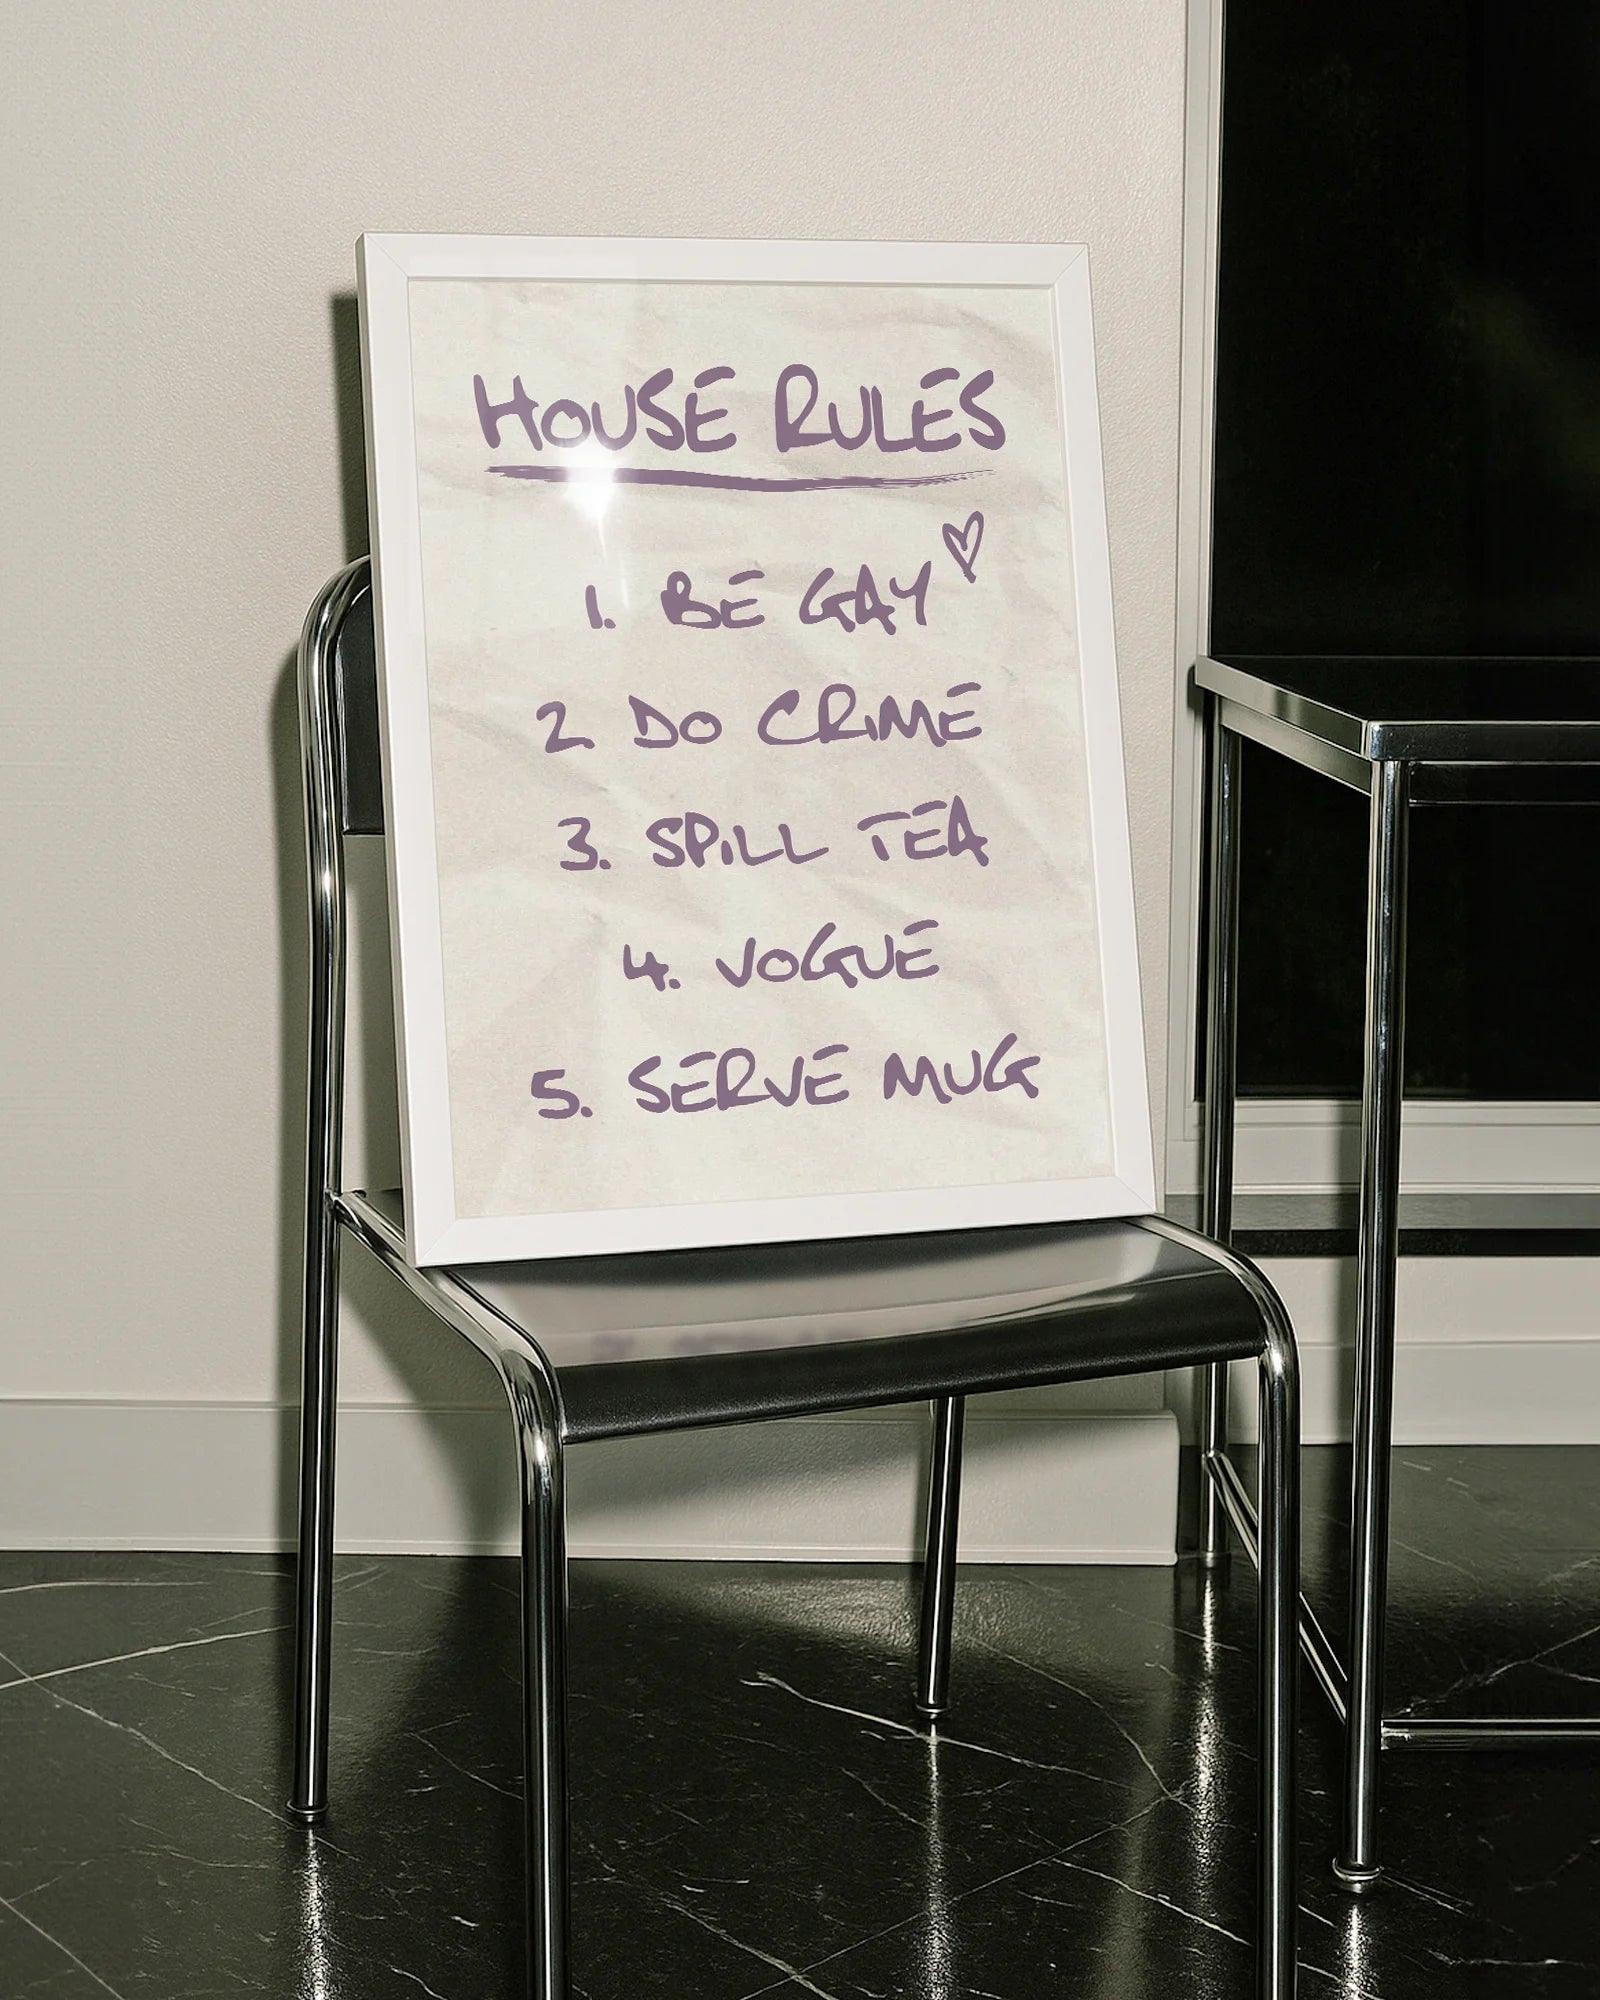 HOUSE RULES
1. BE GAY
2. DO CRIME
3. SPILL TEA
4. VOGUE
5. SERVE MUG